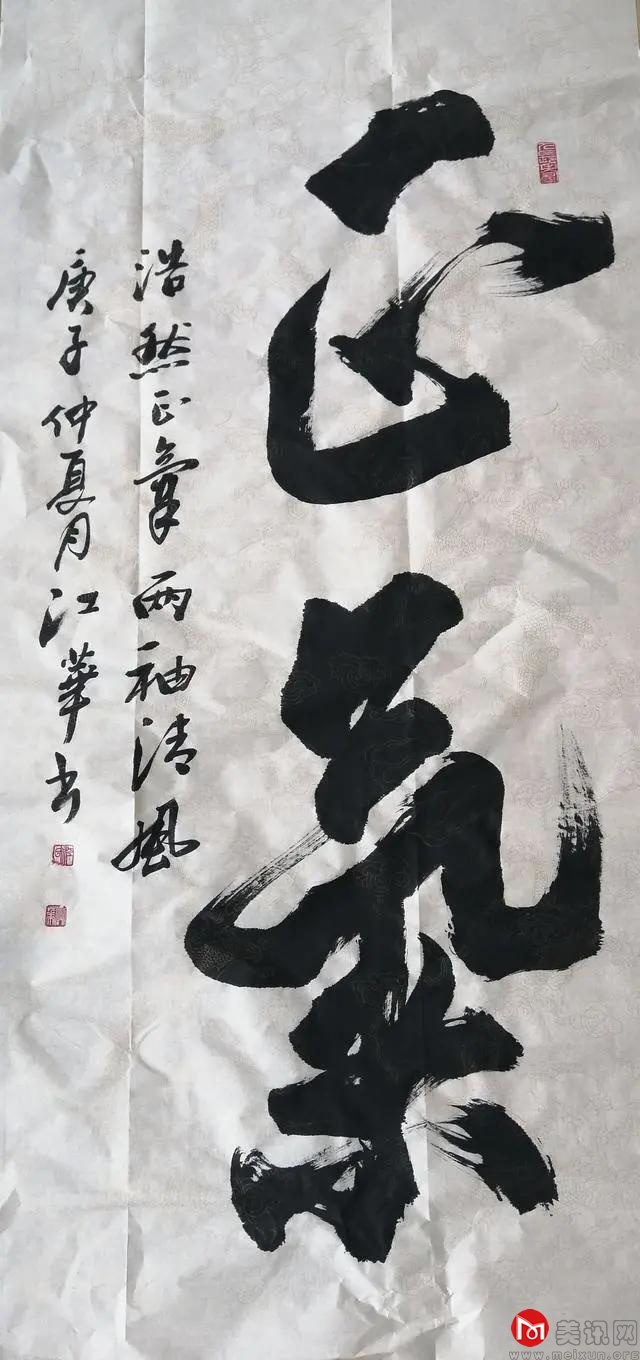 正氣
浩然正氣兩袖清風
庚子仲夏月江華书
美讯网
www.meixun.org